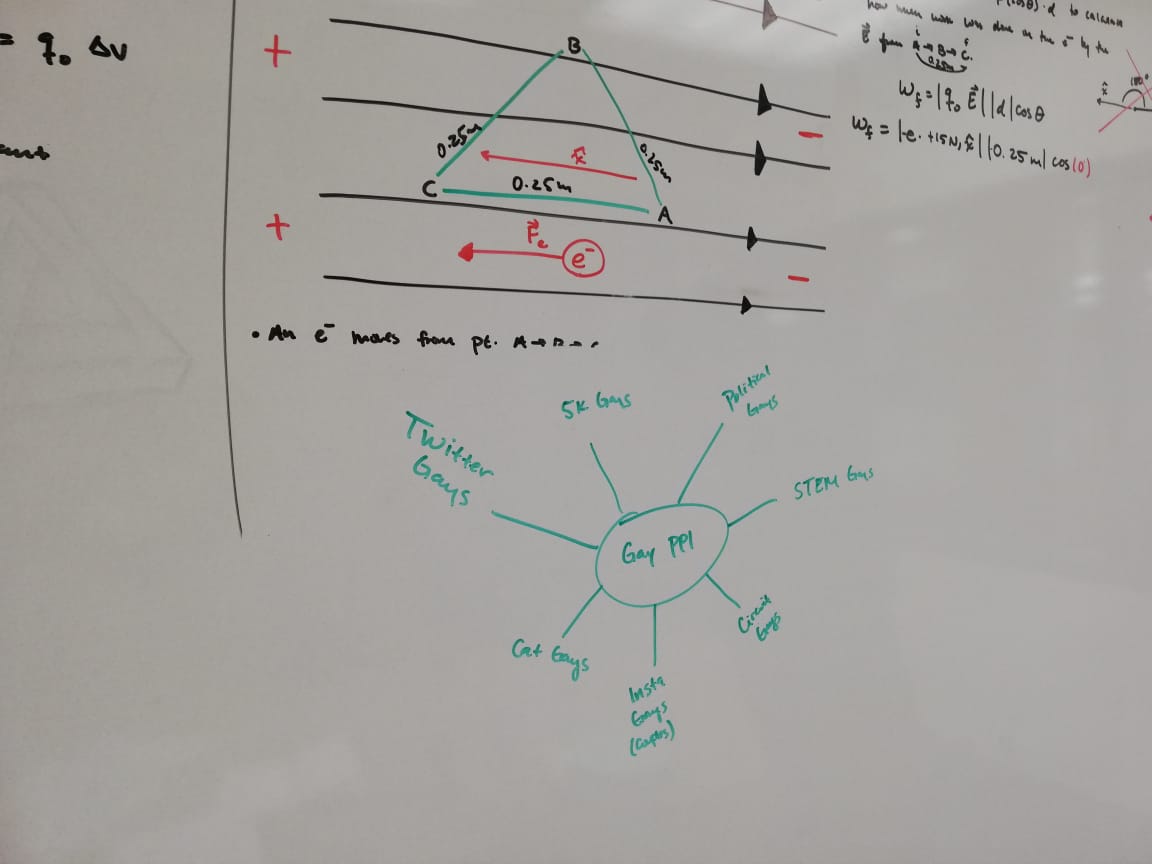 = q₀ ΔV
+
B
0.25m
x̂
0.25m
0.25m
C
A
−
+
F⃗e
e⁻
−
• An e⁻ moves from pt. A→B→C
(cosθ)·d to calculate
how much work was done on the e⁻ by the
E⃗ from A→B→C.
i f
0.25m
W_f = |q₀ E⃗||d|cosθ
W_f = |-e · +15N/c x̂||0.25m| cos(0)
x̂
180°
Twitter
Gays
5K Gays
Political
Gays
STEM Gays
Gay PPl
Circuit
Gays
Cat Gays
Insta
Gays